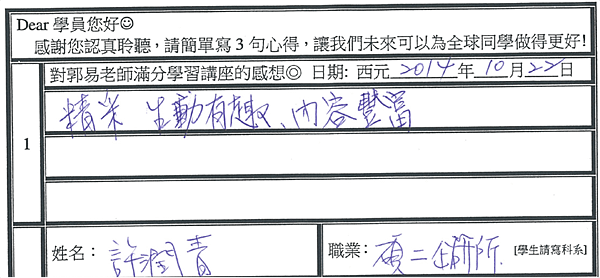 Dear 學員您好☺
感謝您認真聆聽，請簡單寫 3 句心得，讓我們未來可以為全球同學做得更好!
對郭易老師滿分學習講座的感想◎ 日期: 西元 2014 年 10 月 22 日
1
精采 生動有趣、內容豐富
姓名： 許潤青
職業： 碩二 研所 [學生請寫科系]